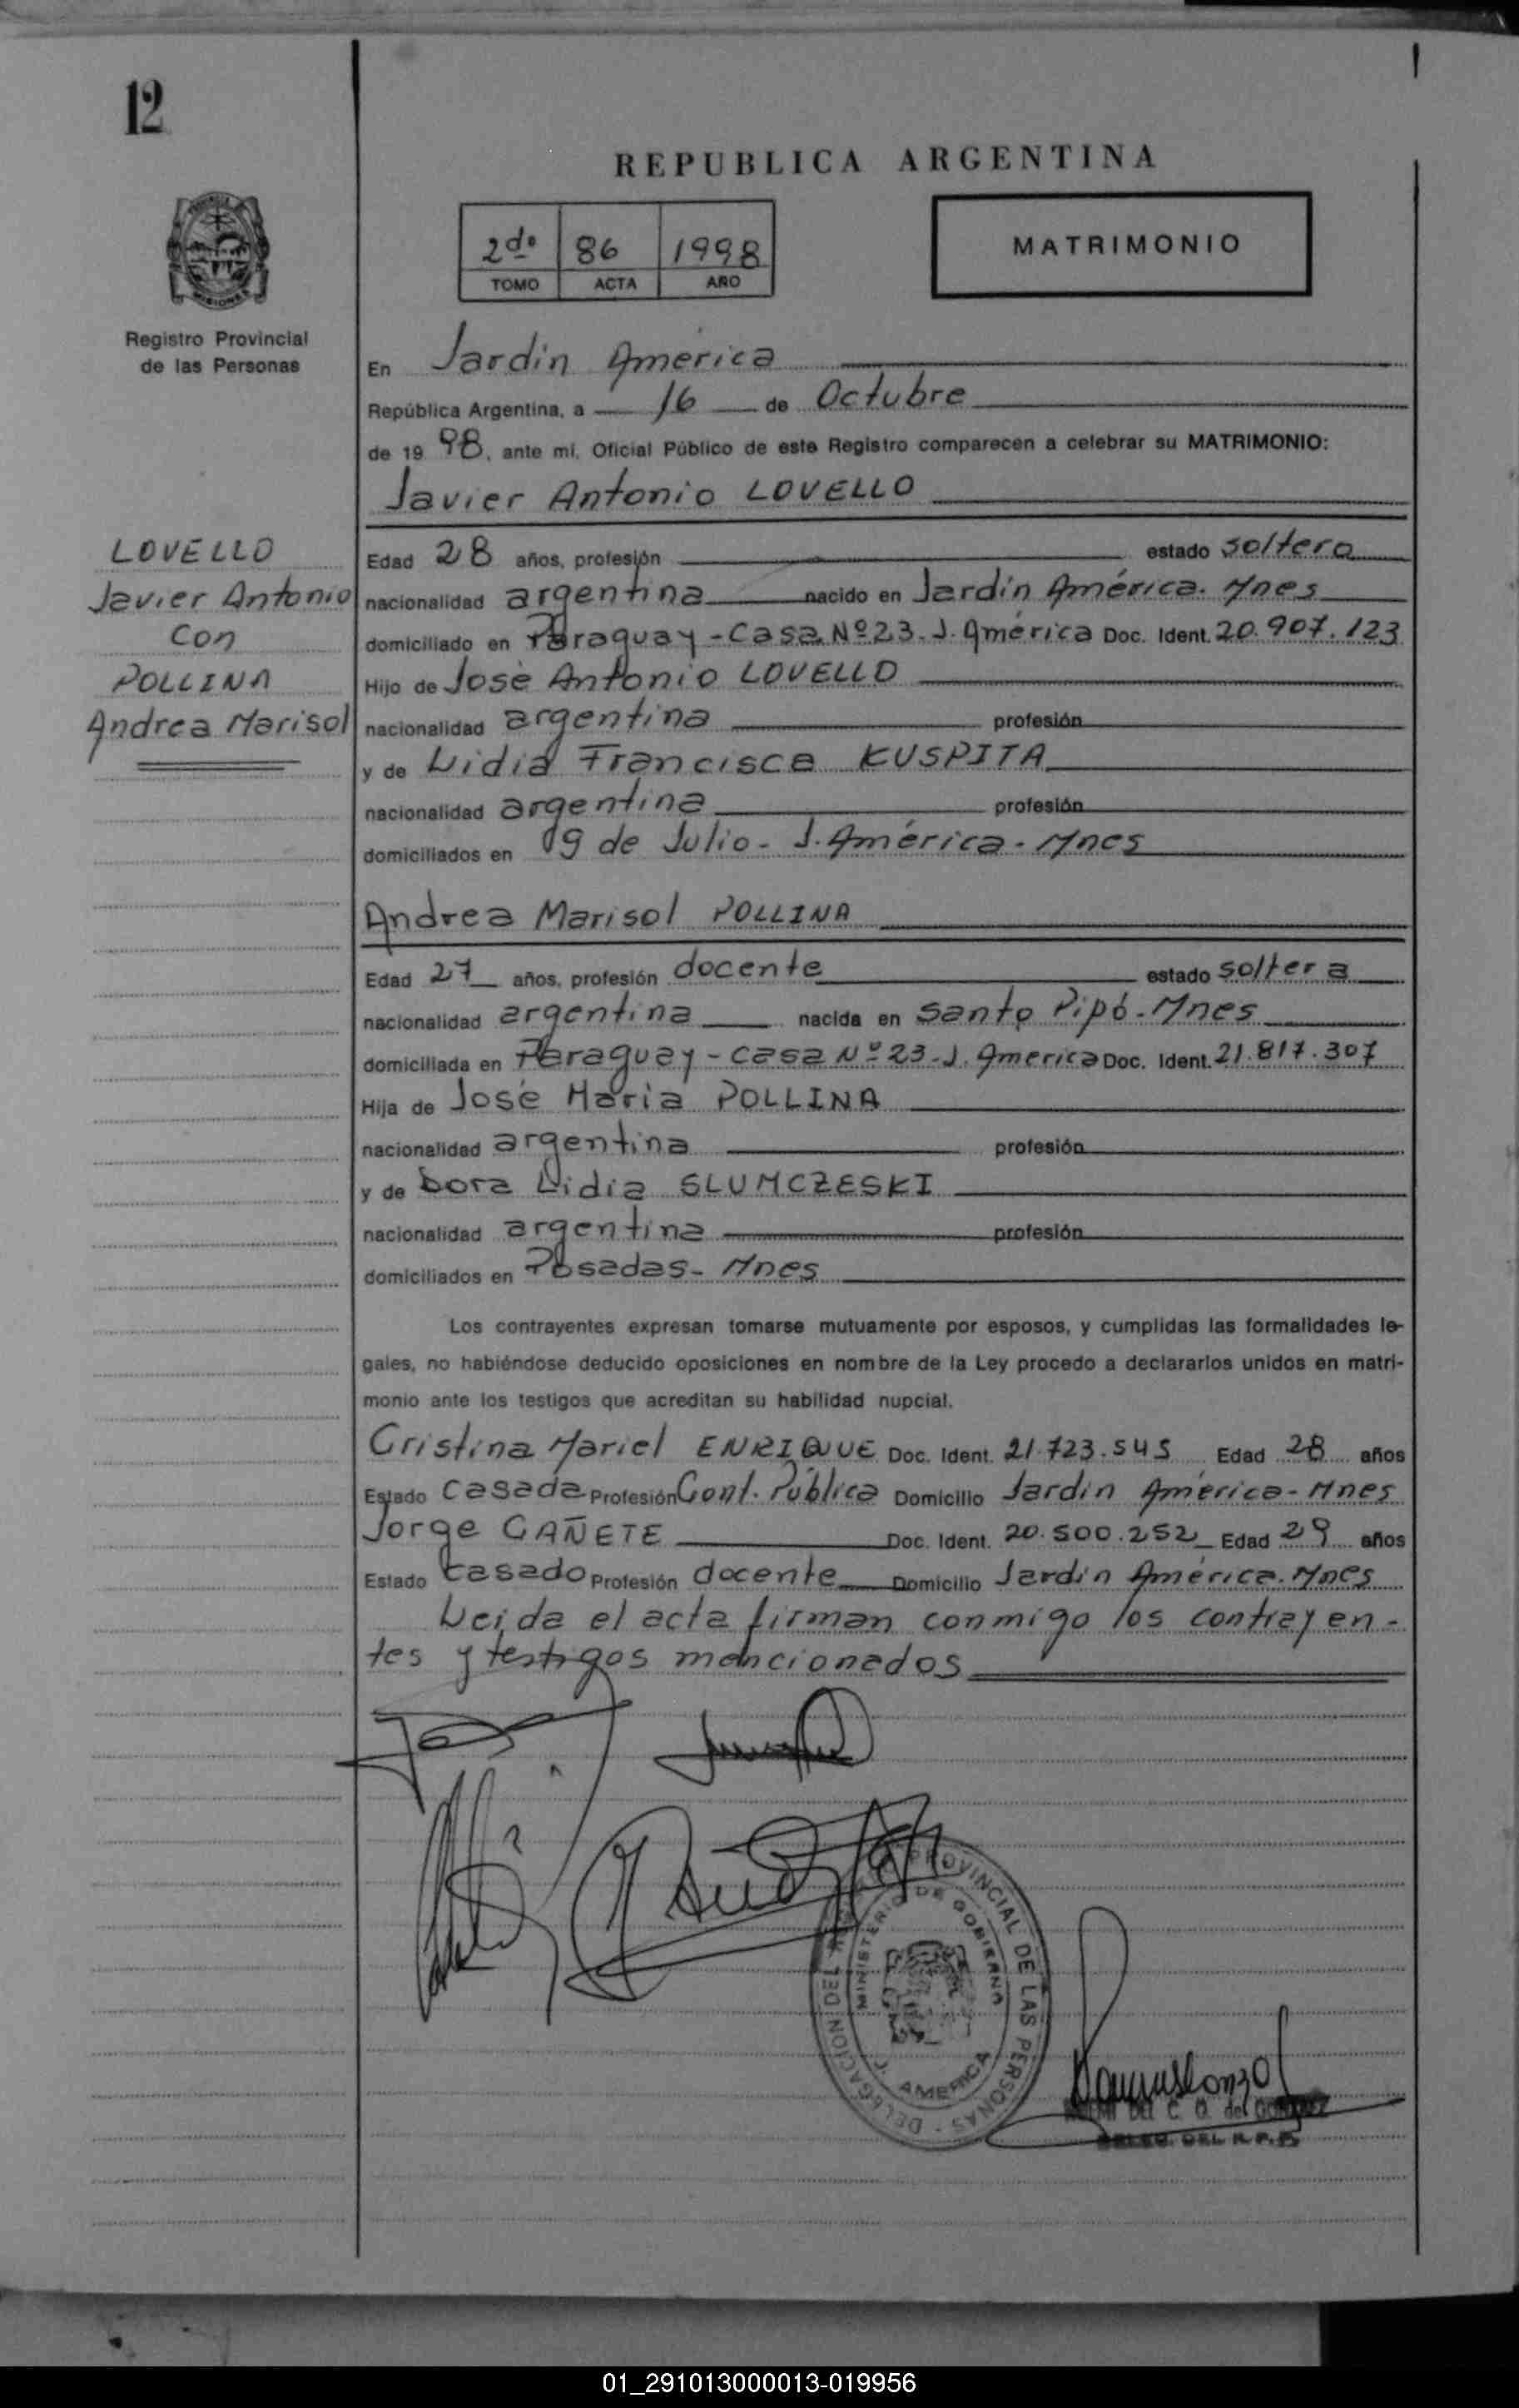 12
REPUBLICA ARGENTINA
2do 86 1998
TOMO ACTA AÑO
MATRIMONIO
MISIONES
Registro Provincial
de las Personas
En Jardín América
República Argentina, a 16 de Octubre
de 19 98, ante mí, Oficial Público de este Registro comparecen a celebrar su MATRIMONIO:
Javier Antonio LOVELLO
LOVELLO
Javier Antonio
con
POLLINA
Andrea Marisol
Edad 28 años, profesión estado soltero
nacionalidad argentina nacido en Jardín América. Mnes
domiciliado en Paraguay - Casa Nº 23. J. América Doc. Ident. 20.907.123
Hijo de José Antonio LOVELLO
nacionalidad argentina profesión
y de Lidia Francisca KUSPITA
nacionalidad argentina profesión
domiciliados en 9 de Julio - J. América - Mnes
Andrea Marisol POLLINA
Edad 27 años, profesión docente estado soltera
nacionalidad argentina nacida en Santo Pipó - Mnes
domiciliada en Paraguay - casa Nº 23 - J. America Doc. Ident. 21.817.307
Hija de José María POLLINA
nacionalidad argentina profesión
y de Dora Lidia SLUMCZESKI
nacionalidad argentina profesión
domiciliados en Posadas - Mnes
Los contrayentes expresan tomarse mutuamente por esposos, y cumplidas las formalidades le-
gales, no habiéndose deducido oposiciones en nombre de la Ley procedo a declararlos unidos en matri-
monio ante los testigos que acreditan su habilidad nupcial.
Cristina Mariel ENRIQUE Doc. Ident. 21.723.545 Edad 28 años
Estado Casada Profesión Cont. Pública Domicilio Jardín América - Mnes
Jorge CAÑETE Doc. Ident. 20.500.252 Edad 29 años
Estado casado Profesión docente Domicilio Jardín América. Mnes
Leida el acta firman conmigo los contrayen-
tes y testigos mencionados
DELEGACION DEL PROVINCIAL DE LAS PERSONAS
MINISTERIO DE GOBIERNO
J. AMERICA
DEL C. O. de
DELEG. DEL R.P.P.
01_291013000013-019956